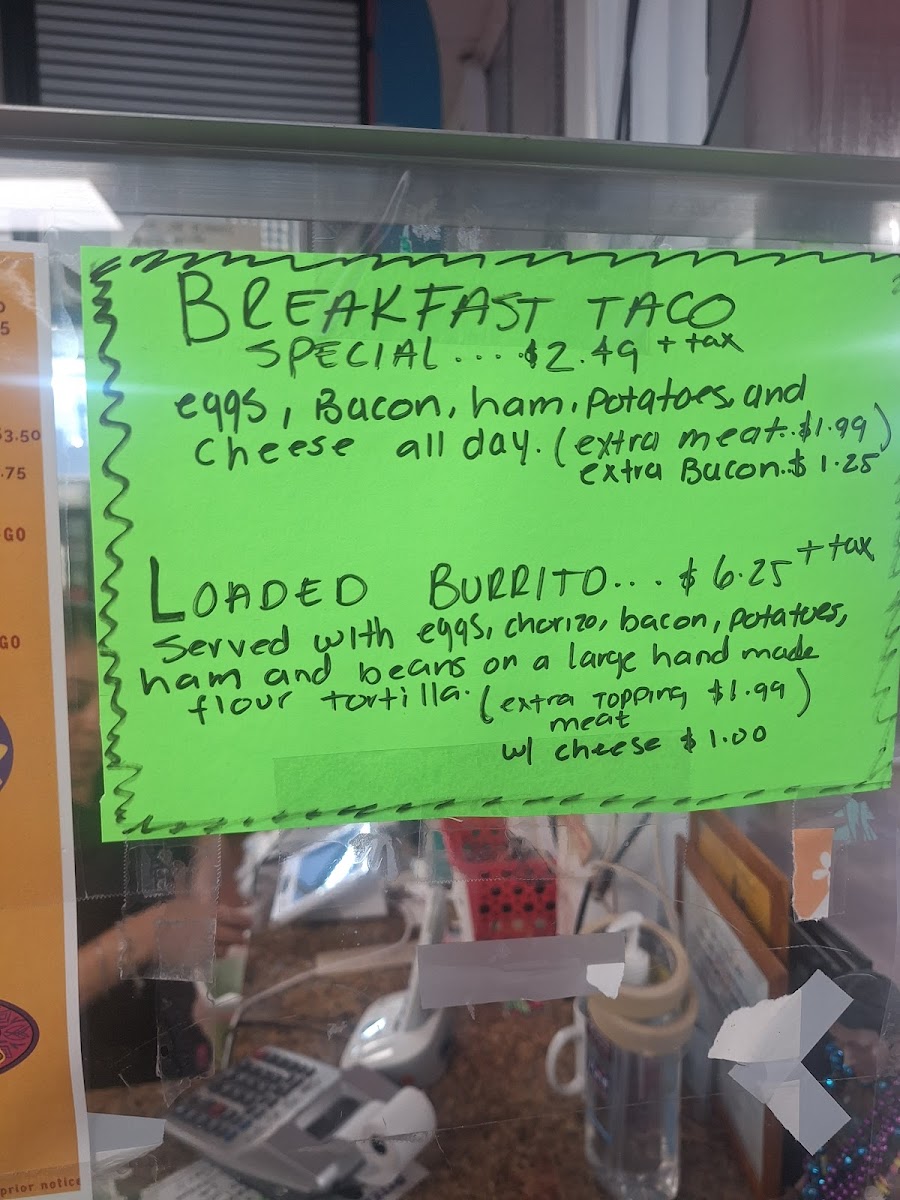 BREAKFAST TACO
SPECIAL....$2.49 + tax
eggs, Bacon, ham, potatoes, and
cheese all day. (extra meat..$1.99)
extra Bacon.$ 1.25
LOADED BURRITO... $ 6.25 + tax
Served with eggs, chorizo, bacon, potatoes,
ham and beans on a large hand made
flour tortilla. (extra topping $1.99)
meat
w/ cheese $ 1.00
5
$3.50
.75
GO
GO
prior notice